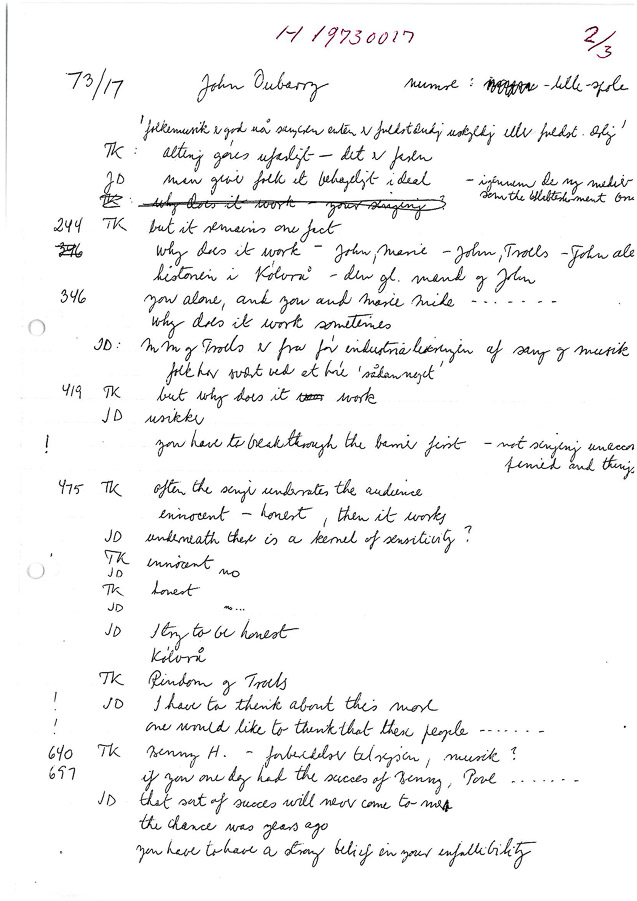 H 19730017 2/3
73/17 John Dubarry numre : -lille-spole
'folkemusik er god når sangeren enten er fuldstændig uskyldig eller fuldst. ærlig'
TK : alting gøres ufarligt — det er faren
JD man giver folk et behageligt ideal — igennem de ny medier
TK: why does it work — your singing ?
244 TK but it remains one fact
346 why does it work — John, Marie — John, Troels — John ale
historien i Kölvrå — den gl. mand og John
346 you alone, and you and Marie Mide - - - - - - -
why does it work sometimes
JD: MM og Troels er fra før industrialiseringen af sang og musik
folk har svært ved at høre 'sådan noget'
419 TK but why does it work
JD usikker
! you have to break through the barrier first — not singing unaccom
panied and things
475 TK often the singer underrates the audience
innocent — honest, then it works
JD underneath there is a kernel of sensitivity ?
TK innocent
JD no
TK honest
JD no...
JD I try to be honest
Kölvrå
TK Rindom og Troels
! JD I have to think about this more
! one would like to think that these people - - - - - - -
640 TK Benny H. — forbedelser television, musik ?
697 if you one day had the succes of Benny, Povl . . . . . . .
JD that sort of succes will never come to me
the chance was years ago
you have to have a strong belief in your infallibility